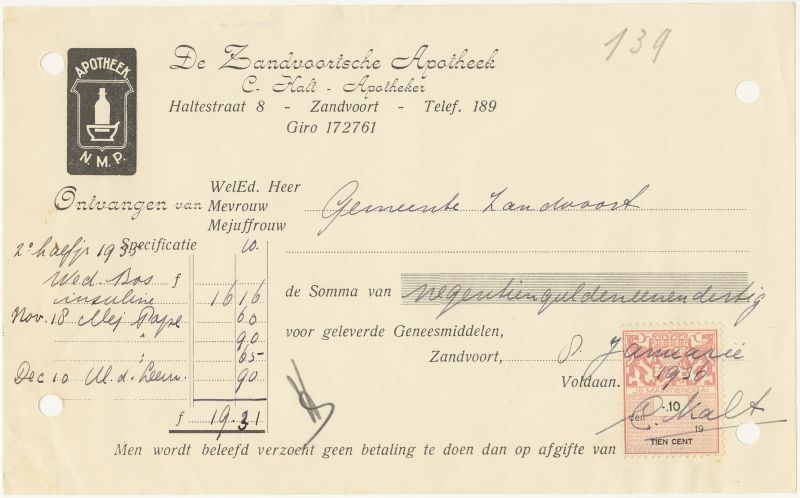 139
APOTHEEK
N.M.P.
De Zandvoortsche Apotheek
C. Kalt - Apotheker
Haltestraat 8 - Zandvoort - Telef. 189
Giro 172761
Ontvangen van
WelEd. Heer
Mevrouw
Mejuffrouw
Gemeente Zandvoort
Specificatie
10.
2e halfjr 1935
Wed. Bos f
insuline 16 16
Nov. 18 Mej Pape 60
" 90
" 65
Dec 10 M. d. Leeuw. 90
f 19.31
de Somma van negentiengulden eenendertig
voor geleverde Geneesmiddelen,
Zandvoort, 8 Januarie
1936
Voldaan.
JE MAINTIENDRAI
-.10
den 19
TIEN CENT
C. Kalt
Men wordt beleefd verzocht geen betaling te doen dan op afgifte van